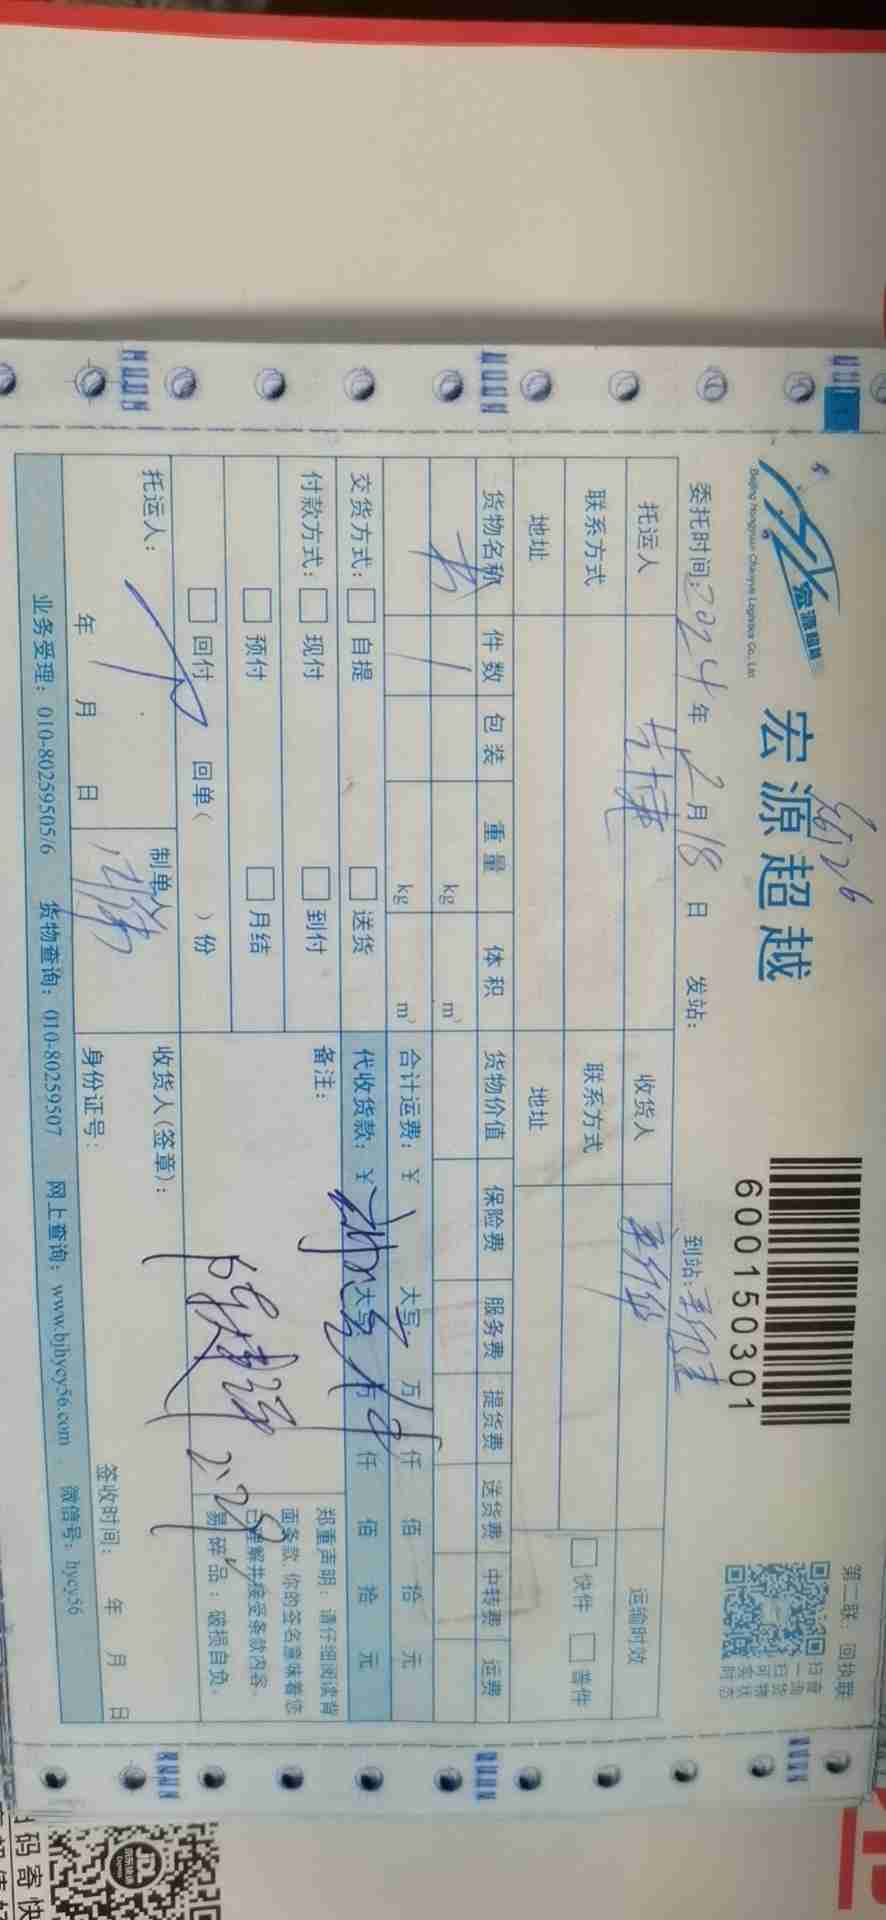 宏源超越
Beijing Hongyuan Chaoyue Logistics Co., Ltd.
宏源超越
6001500301
第二联：回执联
扫查
一询
扫货
可物
实状
时态
委托时间:2024年2月18日 发站: 到站:
托运人 收货人 运输时效
联系方式 联系方式 快件 普件
地址 地址
货物名称 件数 包装 重量 体积 货物价值 保险费 服务费 提货费 送货费 中转费 运费
书 1 kg m³
kg m³ 合计运费: ¥ 大写 万 仟 佰 拾 元
交货方式: 自提 送货 代收货款: ¥ 大写 万 仟 佰 拾 元
付款方式: 现付 到付 备注:
预付 月结
回付 回单( )份
郑重声明：请仔细阅读背
面条款 你的签名意味着您
已理解并接受条款内容。
易碎品：破损自负。
托运人: 制单人 收货人(签章):
年 月 日 身份证号: 签收时间: 年 月 日
业务受理: 010-80259505/6 货物查询: 010-80259507 网上查询: www.bjhycy56.com 微信号: hycy56
码寄快